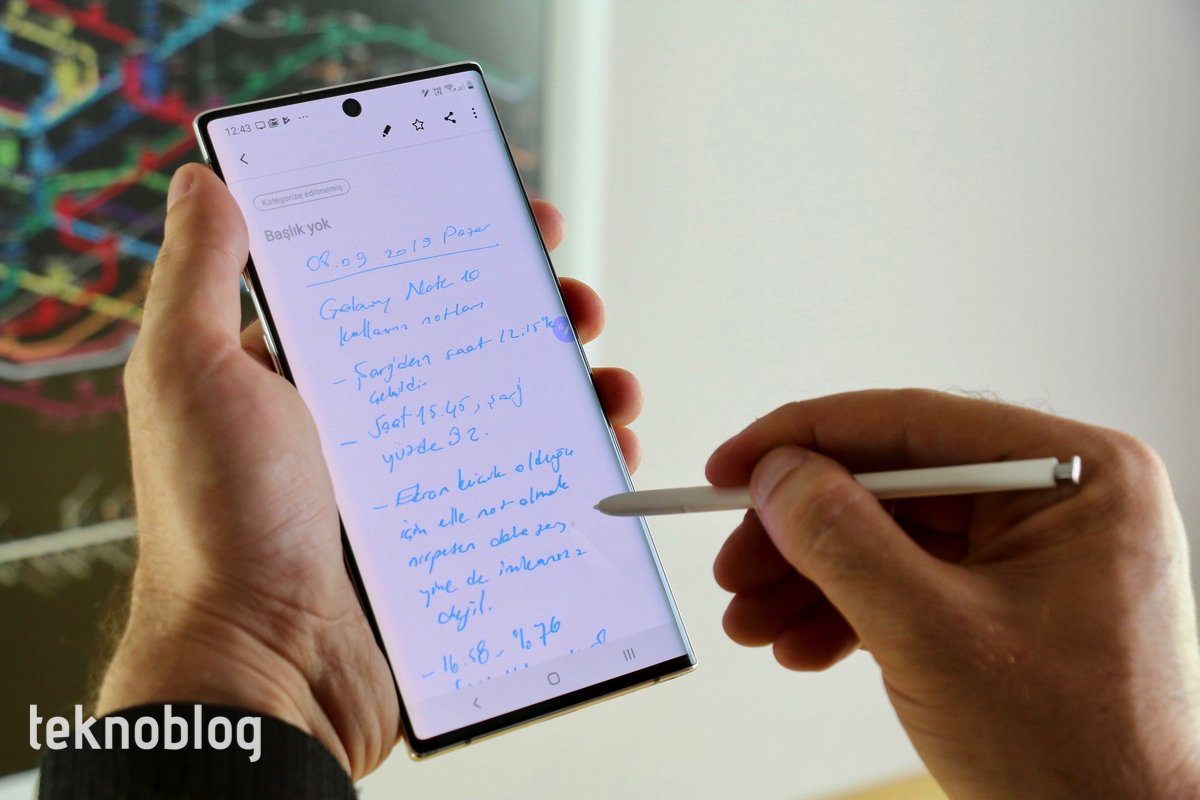 12:43
Kategorize edilmemiş
Başlık yok
08.09.2019 Pazar
Galaxy Note 10
kullanım notları
- Şarjdan saat 12.15'te
çekildi.
- Saat 15.45, şarj
yüzde 92.
- Ekran küçük olduğu
için elle not almak
nispeten daha zor,
yine de imkansız
değil.
- 16.58 - %76
teknoblog